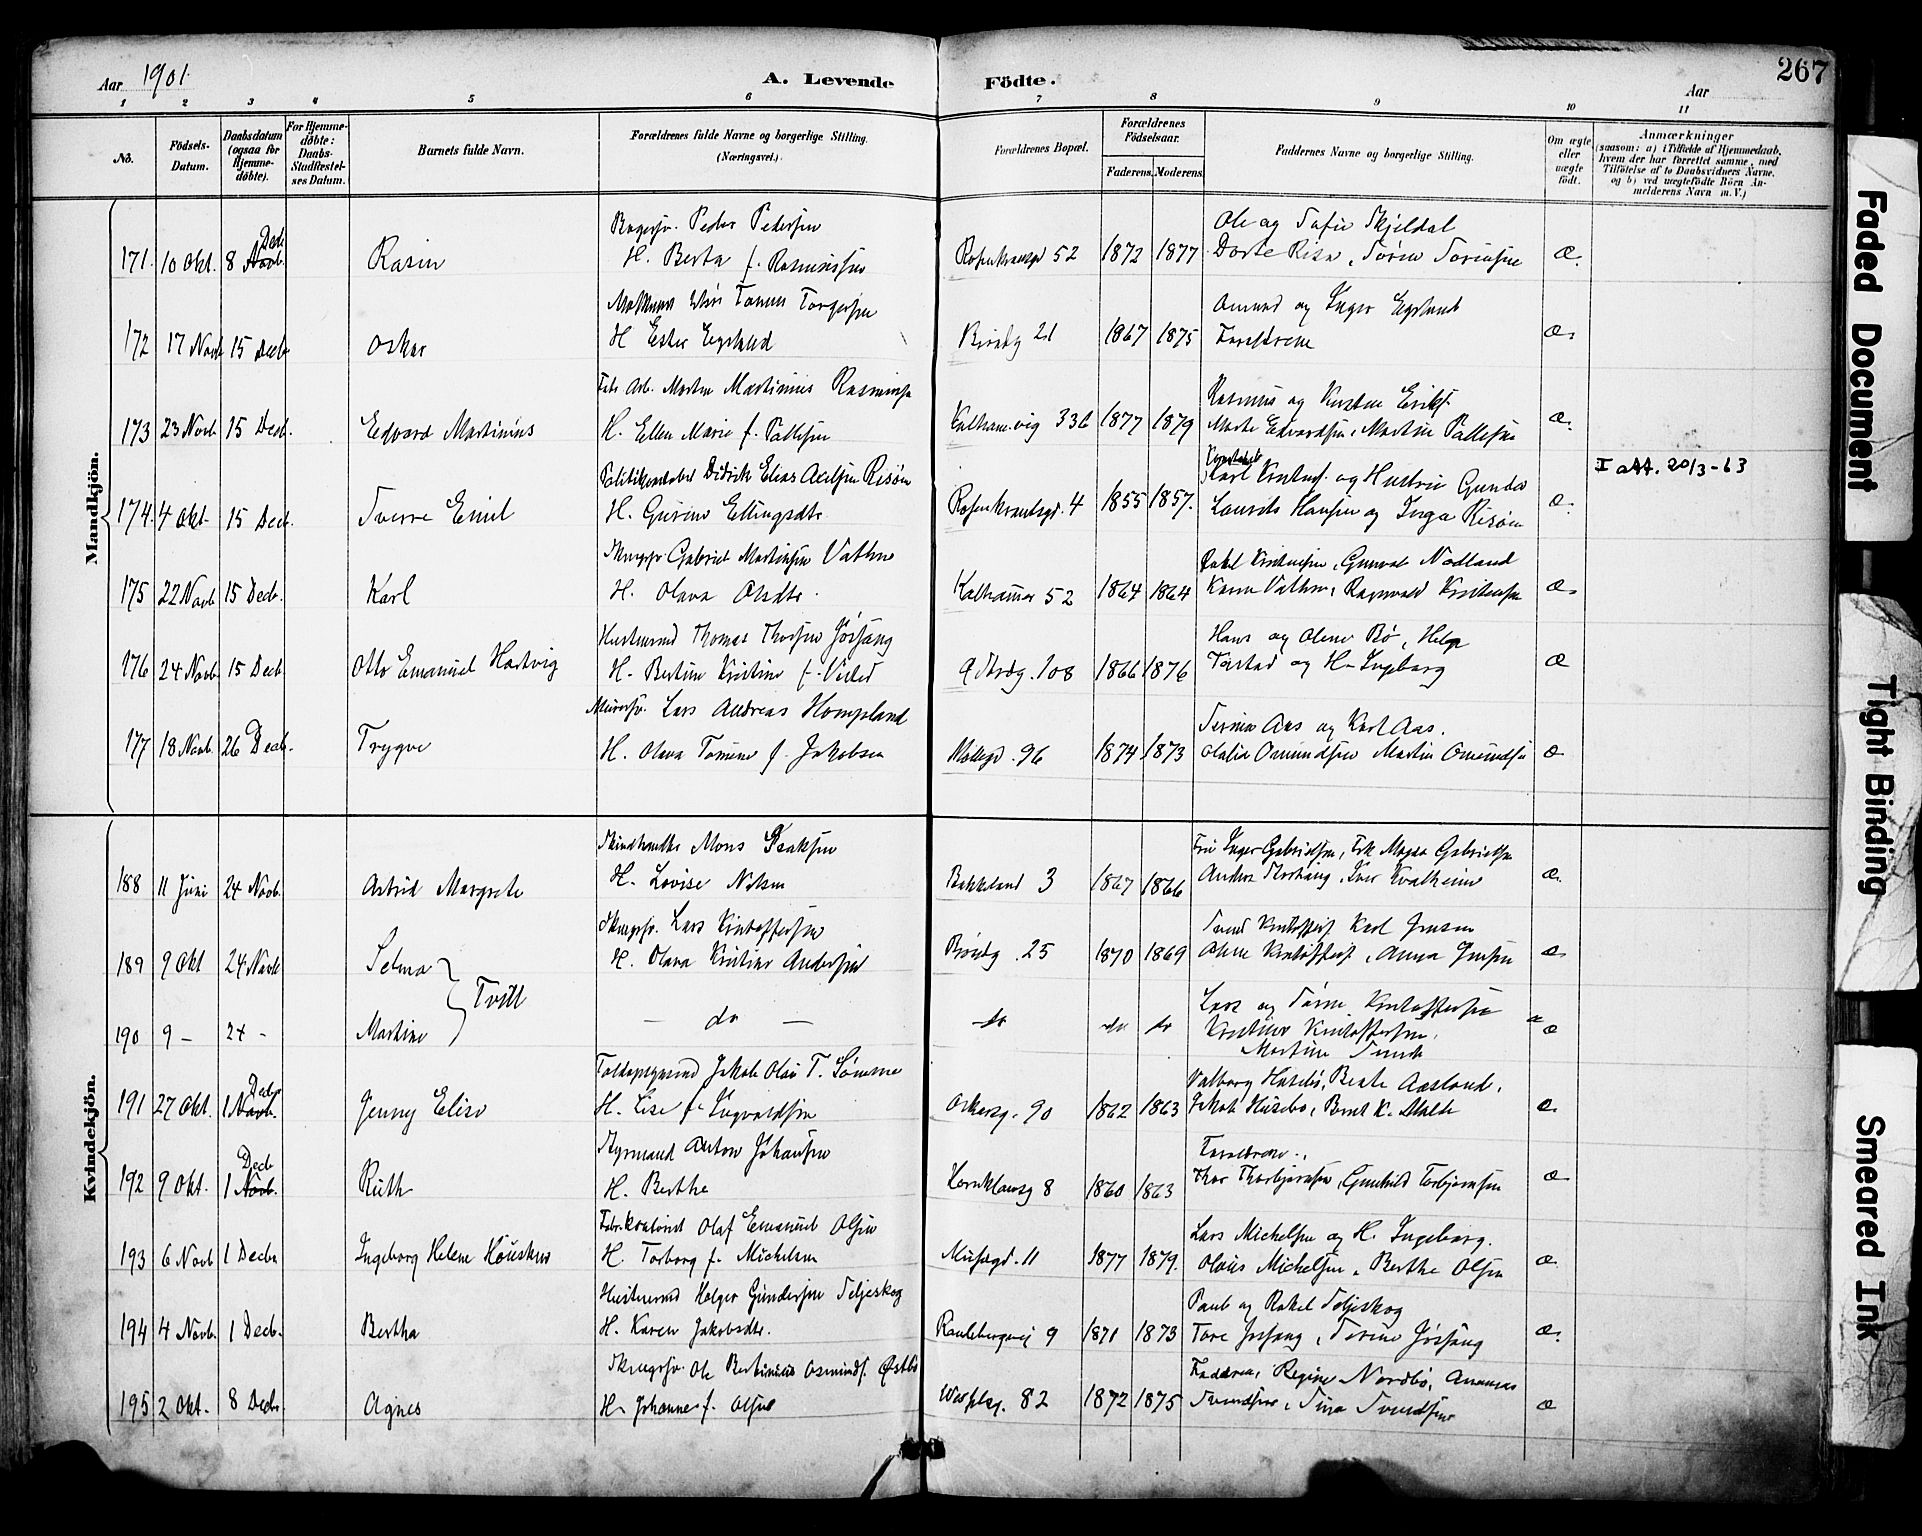 Aar 1901. A. Levende Födte. Aar 267
1 2 3 4 5 6 7 8 9 10 11
No. Födsels-Datum. Daabsdatum (ogsaa for Hjemme-döbte). For Hjemme-döbte: Daabs-Stadfæstel-ses Datum. Barnets fulde Navn. Forældrenes fulde Navne og borgerlige Stilling. (Næringsvei.) Forældrenes Bopæl. Forældrenes Födselsaar. Faderens. Moderens. Faddernes Navne og borgerlige Stilling. Om ægte eller uægte födt. Anmærkninger (saasom: a) i Tilfælde af Hjemmedaab, hvem der har forrettet samme, med Tilföielse af to Daabsvidners Navne, og b) ved uægtefödte Börn An-melderens Navn m. V.)
Mandkjön.
Bagersv. Peder Pedersen Ole og Sofie Skjeldal
171. 10 Okt. 8 Novb. Decb H. Berta f. Rasmussen Rosenkrantsgd 52 1872 1877 Dorte Risa, Sören Sörensen Æ.
Tönnes Torgersen Omund og Inger Egeland
172 17 Novb 15 Decb Oskar H Ester Egeland 21 1867 1875 Forældrene Æ.
Fabr. Arb. Morten Martinius Rasmussen Rasmus og Kirsten Eriks.
173 23 Novb 15 Decb. Edvard Martinius H. Ellen Marie f. Pallesen Kalhammervig 33b 1877 1879 Marte Edvardsen, Martin Pallesen Æ.
Politikonstabel Didrik Elias Axelsen Risöen Konstabel Karl Kristens. og Hustru Gunda I att. 20/3-63
174. 4 Okt. 15 Decb. Sverre Emil H. Gurine Ellingsdtr. Rosenkrantsgd. 4 1855 1857. Laurits Hansen og Inga Risöen Æ.
Gabriel Martinsen Vathne Kristensen, Gunvald Nodland
175 22 Novb 15 Decb. Karl H. Olava Olsdtr. Kalhammer 52 1864 1864 Karen Vathne, Ragnvald Kristensen Æ.
Hustömmermand Thomas Thorsen Jösang Hans og Olene Bö, Helge
176 24 Novb. 15 Decb Otto Emanuel Hartvig H. Bertine Kristine f. 108 1866 1876 Tarstad og H. Ingeborg Æ
Murersv. Lars Andreas Hompland Serina Aas og Karl Aas.
177 18 Novb. 26 Decb. Trygve H. Olava Tomine f. Jakobsen Möllegd. 96 1874 1873 Olalia Omundsen Martin Omundsen Æ
Kvindekjön.
Skindhandler Mons Isaksen Fru Inger Gabrielsen, Frk Magda Gabrielsen
188 11 Juni 24 Novb. Astrid Margrete H. Lovise Nilsen Bakkeland 3 1867 1866 Anders, Iver Kvalheim Æ.
Lars Kristoffersen Svend Kristoffers. Karl Jensen
189 9 Okt 24 Novb Selma H. Olava Kristine Andersen 25 1870 1869 Oline Kristoffers., Anna Jensen Æ.
Tvill
190 9 - 24 - Martine - do - do do do Lars og Sörine Kristoffersen Æ
Kristine Kristoffersen.
Martin Svend
Toldopsynsmd Jakob Olai T. Sömme Valborg Husebö, Beate Aasland.
191 27 Okt. 1 Novb. Decb Jenny Elise H. Lise f. Ingvaldsen Oskarsg. 90 1862 1863 Jakob Husebö, Bernt K. Malde Æ.
Styrmand Anton Johansen Forældrene.,
192 9 Okt. 1 Novb. Decb Ruth H. Berthe Hornklovesg 8 1860 1863 Thor Thorbjörnsen, Gunhild Torbjörnsen Æ
Fabr.kontorist Olaf Emanuel Olsen Lars Michelsen og H. Ingeborg.
193 6 Novb 1 Decbr Ingeborg Helene Houskus H. Torborg f. Michelsen Musegd. 11 1877 1879. Olaus Michelsen, Berthe Olsen Æ
Hustömmermd Holger Gundersen Seljeskog Paul og Rakel Seljeskog
194 4 Novb. 1 Decb. Bertha H. Karen Jakobsdtr. Ramsbergvej 9 1871 1873 Tore Jösang, Serine Jösang Æ.
Ole Bertinius Osmunds. Östbö Faderen, Regine Nordbö,
195 2 Okt. 8 Decbr Agnes H. Johanne f. Olsen 82 1872 1875 Svendsen, Tina Svendsen Æ
Faded Document
Tight Binding
Smeared Ink